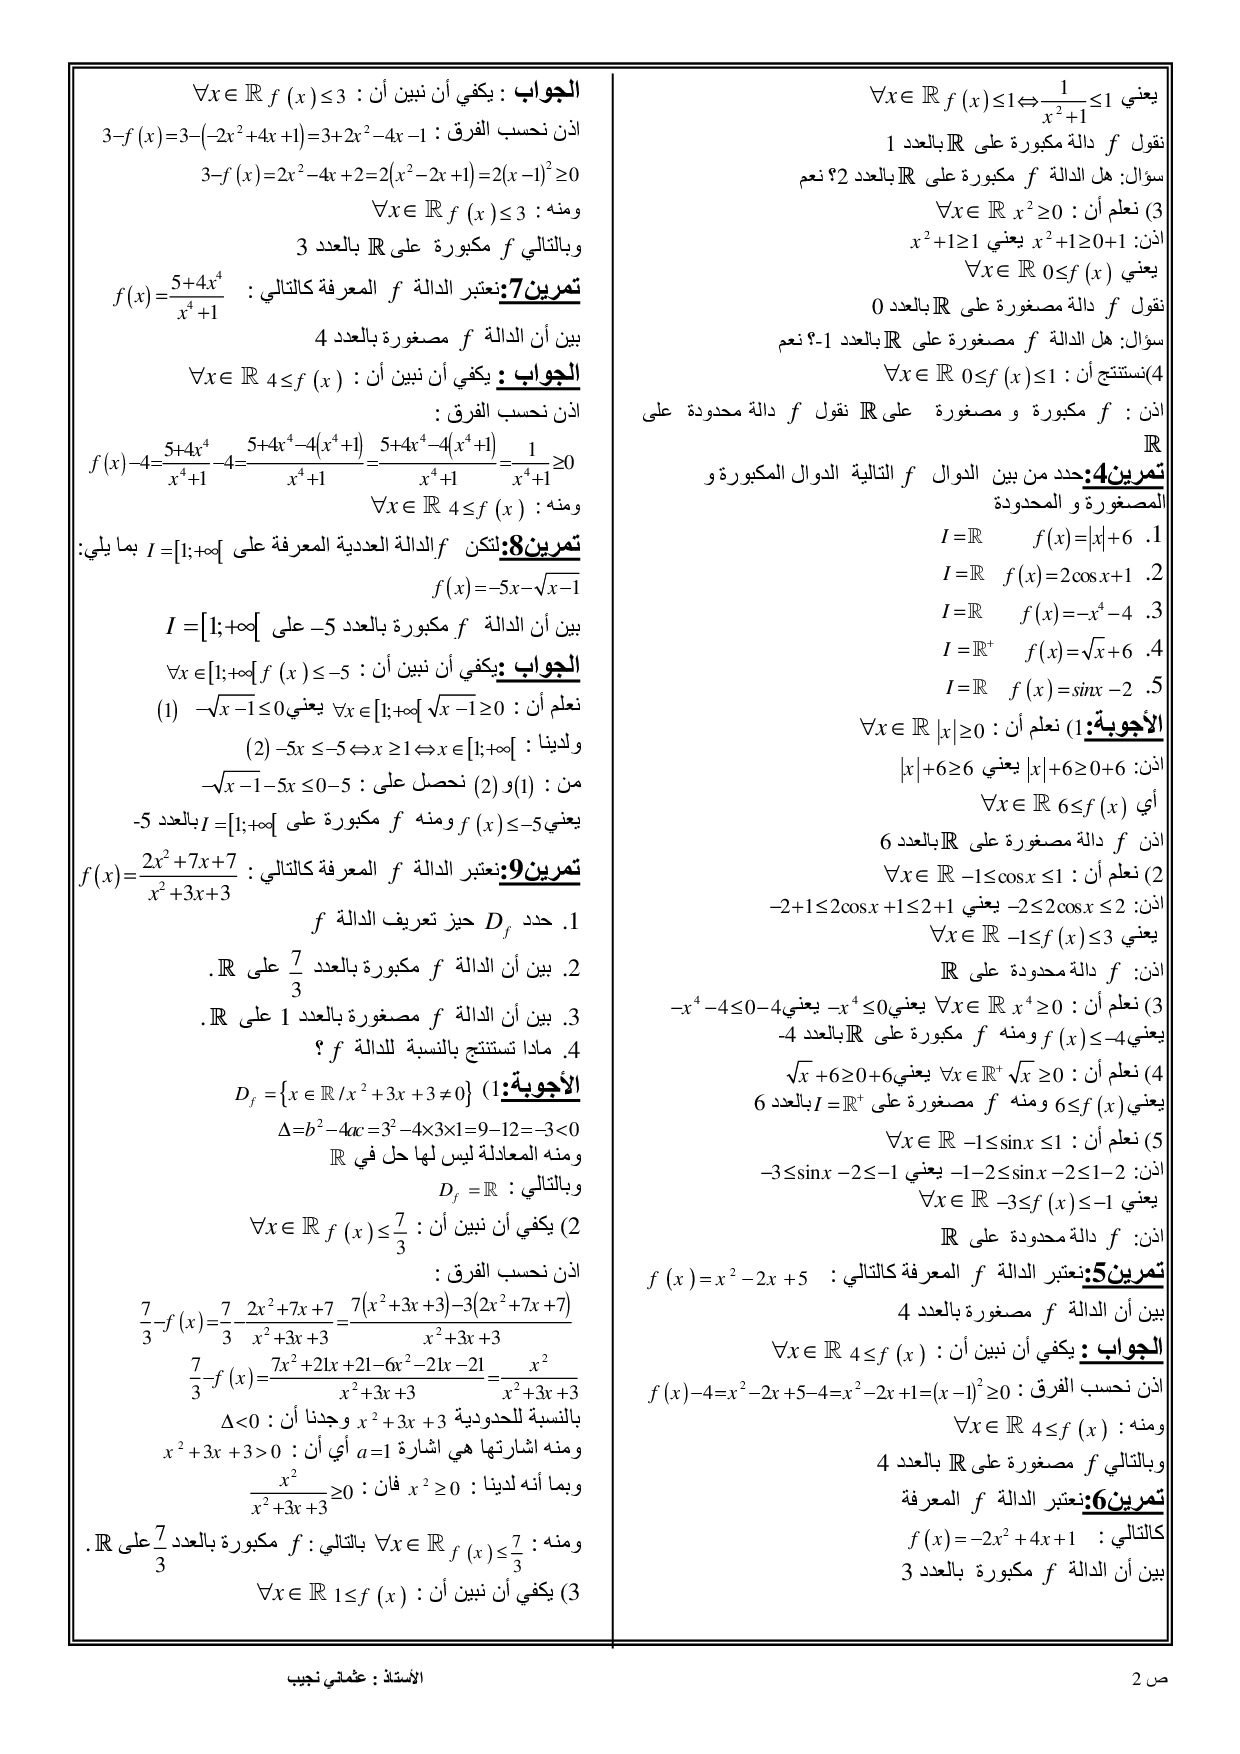 يعني $f(x) \le 1 \Leftrightarrow \frac{1}{x^2+1} \le 1$ $\forall x \in \mathbb{R}$
نقول $f$ دالة مكبورة على $\mathbb{R}$ بالعدد 1
سؤال: هل الدالة $f$ مكبورة على $\mathbb{R}$ بالعدد 2؟ نعم
3) نعلم أن : $x^2 \ge 0$ $\forall x \in \mathbb{R}$
اذن: $x^2+1 \ge 0+1$ يعني $x^2+1 \ge 1$
يعني $0 \le f(x)$ $\forall x \in \mathbb{R}$
نقول $f$ دالة مصغورة على $\mathbb{R}$ بالعدد 0
سؤال: هل الدالة $f$ مصغورة على $\mathbb{R}$ بالعدد 1-؟ نعم
4)نستنتج أن : $0 \le f(x) \le 1$ $\forall x \in \mathbb{R}$
اذن : $f$ مكبورة و مصغورة على $\mathbb{R}$ نقول $f$ دالة محدودة على
$\mathbb{R}$
تمرين4:حدد من بين الدوال $f$ التالية الدوال المكبورة و
المصغورة و المحدودة
1. $f(x)=|x|+6$ $I=\mathbb{R}$
2. $f(x)=2\cos x+1$ $I=\mathbb{R}$
3. $f(x)=-x^4-4$ $I=\mathbb{R}$
4. $f(x)=\sqrt{x}+6$ $I=\mathbb{R}^+$
5. $f(x)=sinx-2$ $I=\mathbb{R}$
الأجوبة:1) نعلم أن : $|x| \ge 0$ $\forall x \in \mathbb{R}$
اذن: $|x|+6 \ge 0+6$ يعني $|x|+6 \ge 6$
أي $6 \le f(x)$ $\forall x \in \mathbb{R}$
اذن $f$ دالة مصغورة على $\mathbb{R}$ بالعدد 6
2) نعلم أن : $-1 \le \cos x \le 1$ $\forall x \in \mathbb{R}$
اذن: $-2 \le 2\cos x \le 2$ يعني $-2+1 \le 2\cos x+1 \le 2+1$
يعني $-1 \le f(x) \le 3$ $\forall x \in \mathbb{R}$
اذن: $f$ دالة محدودة على $\mathbb{R}$
3) نعلم أن : $x^4 \ge 0$ $\forall x \in \mathbb{R}$ يعني $-x^4 \le 0$ يعني $-x^4-4 \le 0-4$
يعني $f(x) \le -4$ ومنه $f$ مكبورة على $\mathbb{R}$ بالعدد 4-
4) نعلم أن : $\sqrt{x} \ge 0$ $\forall x \in \mathbb{R}^+$ يعني $\sqrt{x}+6 \ge 0+6$
يعني $6 \le f(x)$ ومنه $f$ مصغورة على $I=\mathbb{R}^+$ بالعدد 6
5) نعلم أن : $-1 \le \sin x \le 1$ $\forall x \in \mathbb{R}$
اذن: $-1-2 \le \sin x-2 \le 1-2$ يعني $-3 \le \sin x-2 \le -1$
يعني $-3 \le f(x) \le -1$ $\forall x \in \mathbb{R}$
اذن: $f$ دالة محدودة على $\mathbb{R}$
تمرين5:نعتبر الدالة $f$ المعرفة كالتالي : $f(x)=x^2-2x+5$
بين أن الدالة $f$ مصغورة بالعدد 4
الجواب : يكفي أن نبين أن : $4 \le f(x)$ $\forall x \in \mathbb{R}$
اذن نحسب الفرق : $f(x)-4=x^2-2x+5-4=x^2-2x+1=(x-1)^2 \ge 0$
ومنه : $4 \le f(x)$ $\forall x \in \mathbb{R}$
وبالتالي $f$ مصغورة على $\mathbb{R}$ بالعدد 4
تمرين6:نعتبر الدالة $f$ المعرفة
كالتالي : $f(x)=-2x^2+4x+1$
بين أن الدالة $f$ مكبورة بالعدد 3
الجواب : يكفي أن نبين أن : $f(x) \le 3$ $\forall x \in \mathbb{R}$
اذن نحسب الفرق : $3-f(x)=3-(-2x^2+4x+1)=3+2x^2-4x-1$
$3-f(x)=2x^2-4x+2=2(x^2-2x+1)=2(x-1)^2 \ge 0$
ومنه : $f(x) \le 3$ $\forall x \in \mathbb{R}$
وبالتالي $f$ مكبورة على $\mathbb{R}$ بالعدد 3
تمرين7:نعتبر الدالة $f$ المعرفة كالتالي : $f(x)=\frac{5+4x^4}{x^4+1}$
بين أن الدالة $f$ مصغورة بالعدد 4
الجواب : يكفي أن نبين أن : $4 \le f(x)$ $\forall x \in \mathbb{R}$
اذن نحسب الفرق :
$f(x)-4=\frac{5+4x^4}{x^4+1}-4=\frac{5+4x^4-4(x^4+1)}{x^4+1}=\frac{5+4x^4-4(x^4+1)}{x^4+1}=\frac{1}{x^4+1} \ge 0$
ومنه : $4 \le f(x)$ $\forall x \in \mathbb{R}$
تمرين8:لتكن $f$ الدالة العددية المعرفة على $I=[1;+\infty[$ بما يلي:
$f(x)=-5x-\sqrt{x-1}$
بين أن الدالة $f$ مكبورة بالعدد $-5$ على $I=[1;+\infty[$
الجواب :يكفي أن نبين أن : $f(x) \le -5$ $\forall x \in [1;+\infty[$
نعلم أن : $\sqrt{x-1} \ge 0$ $\forall x \in [1;+\infty[$ يعني $-\sqrt{x-1} \le 0$ (1)
ولدينا : $-5x \le -5 \Leftrightarrow x \ge 1 \Leftrightarrow x \in [1;+\infty[$ (2)
من : (1)و (2) نحصل على : $-\sqrt{x-1}-5x \le 0-5$
يعني $f(x) \le -5$ ومنه $f$ مكبورة على $I=[1;+\infty[$ بالعدد 5-
تمرين9:نعتبر الدالة $f$ المعرفة كالتالي : $f(x)=\frac{2x^2+7x+7}{x^2+3x+3}$
1. حدد $D_f$ حيز تعريف الدالة $f$
2. بين أن الدالة $f$ مكبورة بالعدد $\frac{7}{3}$ على $\mathbb{R}$.
3. بين أن الدالة $f$ مصغورة بالعدد 1 على $\mathbb{R}$.
4. ماذا تستنتج بالنسبة للدالة $f$ ؟
الأجوبة:1) $D_f=\{x \in \mathbb{R}/x^2+3x+3 \ne 0\}$
$\Delta=b^2-4ac=3^2-4\times3\times1=9-12=-3<0$
ومنه المعادلة ليس لها حل في $\mathbb{R}$
وبالتالي : $D_f=\mathbb{R}$
2) يكفي أن نبين أن : $f(x) \le \frac{7}{3}$ $\forall x \in \mathbb{R}$
اذن نحسب الفرق :
$\frac{7}{3}-f(x)=\frac{7}{3}-\frac{2x^2+7x+7}{x^2+3x+3}=\frac{7(x^2+3x+3)-3(2x^2+7x+7)}{x^2+3x+3}$
$\frac{7}{3}-f(x)=\frac{7x^2+21x+21-6x^2-21x-21}{x^2+3x+3}=\frac{x^2}{x^2+3x+3}$
بالنسبة للحدودية $x^2+3x+3$ وجدنا أن : $\Delta<0$
ومنه اشارتها هي اشارة $a=1$ أي أن : $x^2+3x+3>0$
وبما أنه لدينا : $x^2 \ge 0$ فان : $\frac{x^2}{x^2+3x+3} \ge 0$
ومنه : $f(x) \le \frac{7}{3}$ $\forall x \in \mathbb{R}$ بالتالي : $f$ مكبورة بالعدد $\frac{7}{3}$ على $\mathbb{R}$.
3) يكفي أن نبين أن : $1 \le f(x)$ $\forall x \in \mathbb{R}$
ص 2
الأستاذ : عثماني نجيب